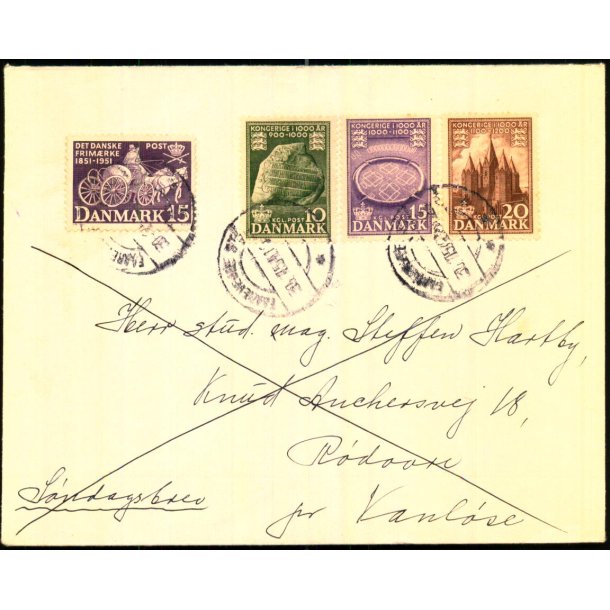 DET DANSKE POST
FRIMÆRKE
1851-1951
DANMARK 15
KONGERIGE I 1000 ÅR
900-1000
KGL. POST 10
DANMARK
KONGERIGE I 1000 ÅR
1000-1100
KGL. POST 15
DANMARK
KONGERIGE I 1000 ÅR
1100-1200
KGL. POST 20
DANMARK
Herr stud. mag. Steffen Hartby,
Knud Anchersvej 18,
Rødovre
Søndagsbrev
pr Vanløse